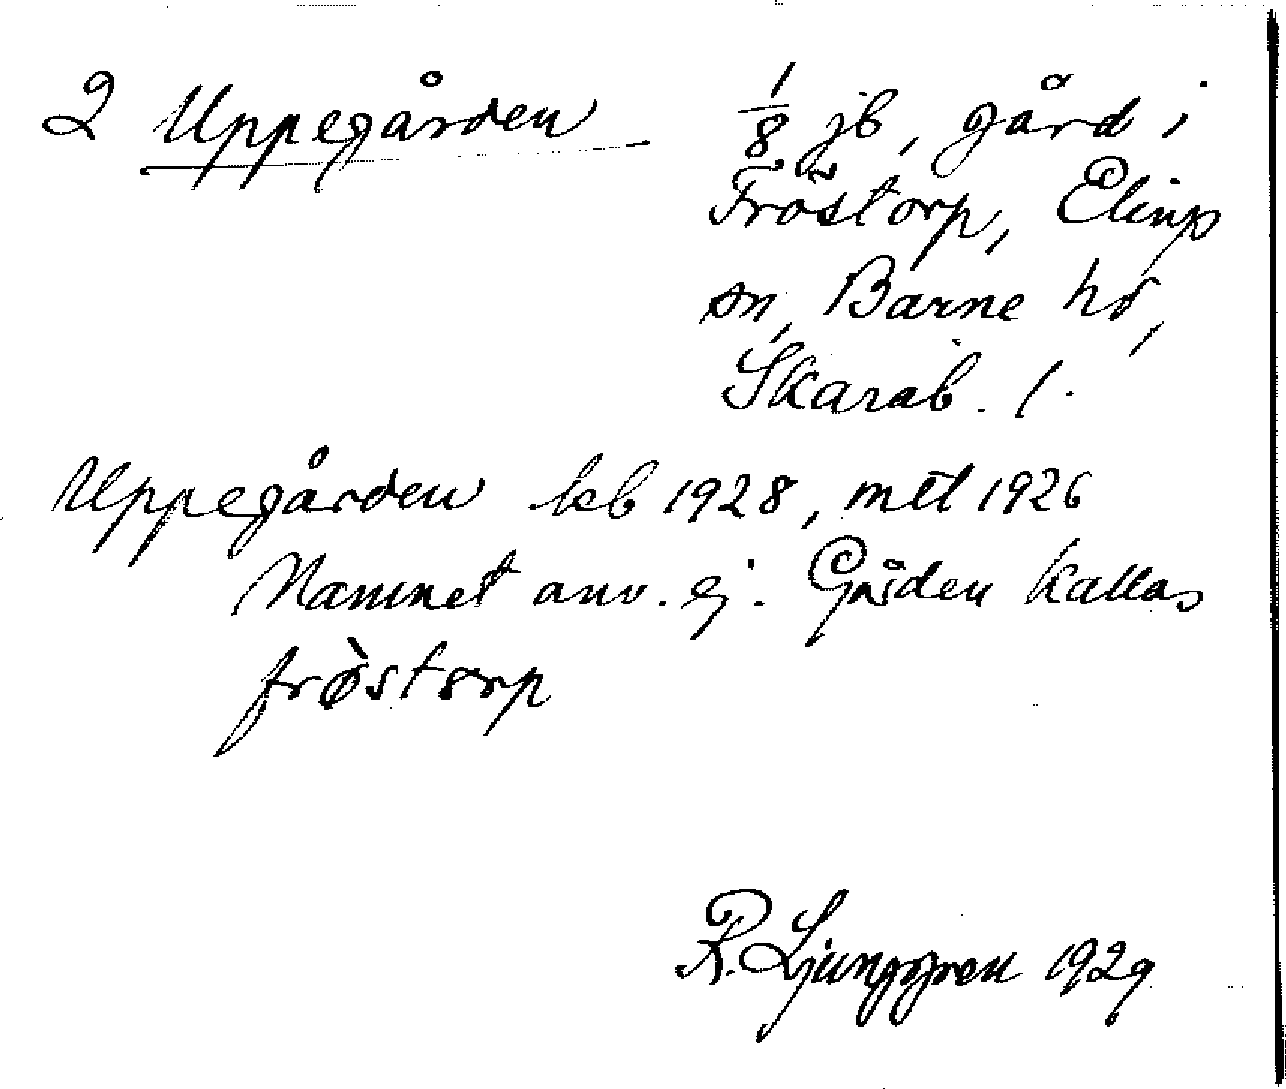 2 Uppegården 1/8 jb, gård i
Fröstorp, Elings
sn, Barne hd,
Skarab. l.
Uppegården kb 1928, mtl 1926
Namnet anv. ej. Gården kallas
frø̀storp
R. Ljunggren 1929